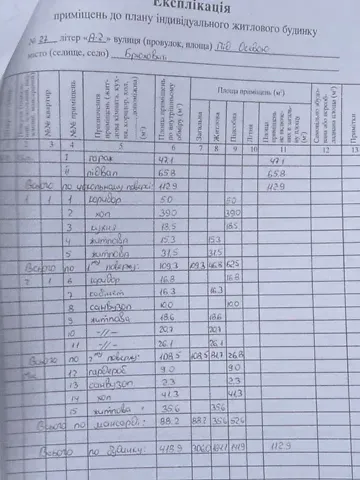 Експлікація
приміщень до плану індивідуального житлового будинку
№ 27 літер «А-2» вулиця (провулок, площа) Під Осовою
місто (селище, село) Брюховичі
№№ квартир
№№ приміщень
Призначення приміщень (житлова кімната, кухня, коридор, тощо)
Площа приміщень по внутрішньому обміру (м²)
Площа приміщень (м²)
Загальна
Житлова
Підсобна
Літня
Площа приміщень не включених в загальну площу
Самовільно збудована або переобладнана площа (м²)
Примітки
3 4 5 6 7 8 9 10 11 12 13
I гараж 47.1 47.1
II підвал 65.8 65.8
Всього по цокольному поверху: 112.9 112.9
1 1 1 коридор 5.0 5.0
2 хол 39.0 39.0
3 кухня 18.5 18.5
4 житлова 15.3 15.3
5 житлова 31.5 31.5
Всього по 1му поверху: 109.3 109.3 46.8 62.5
2 1 6 коридор 16.8 16.8
7 кабінет 16.3 16.3
8 санвузол 10.0 10.0
9 житлова 18.6 18.6
10 -//- 20.7 20.7
11 -//- 26.1 26.1
Всього по 2му поверху: 108.5 108.5 81.7 26.8
12 гардероб 9.0 9.0
13 санвузол 2.3 2.3
14 хол 41.3 41.3
15 житлова 35.6 35.6
Всього по мансарді: 88.2 88.2 35.6 52.6
Всього по будинку: 418.9 306.0 164.1 141.9 112.9